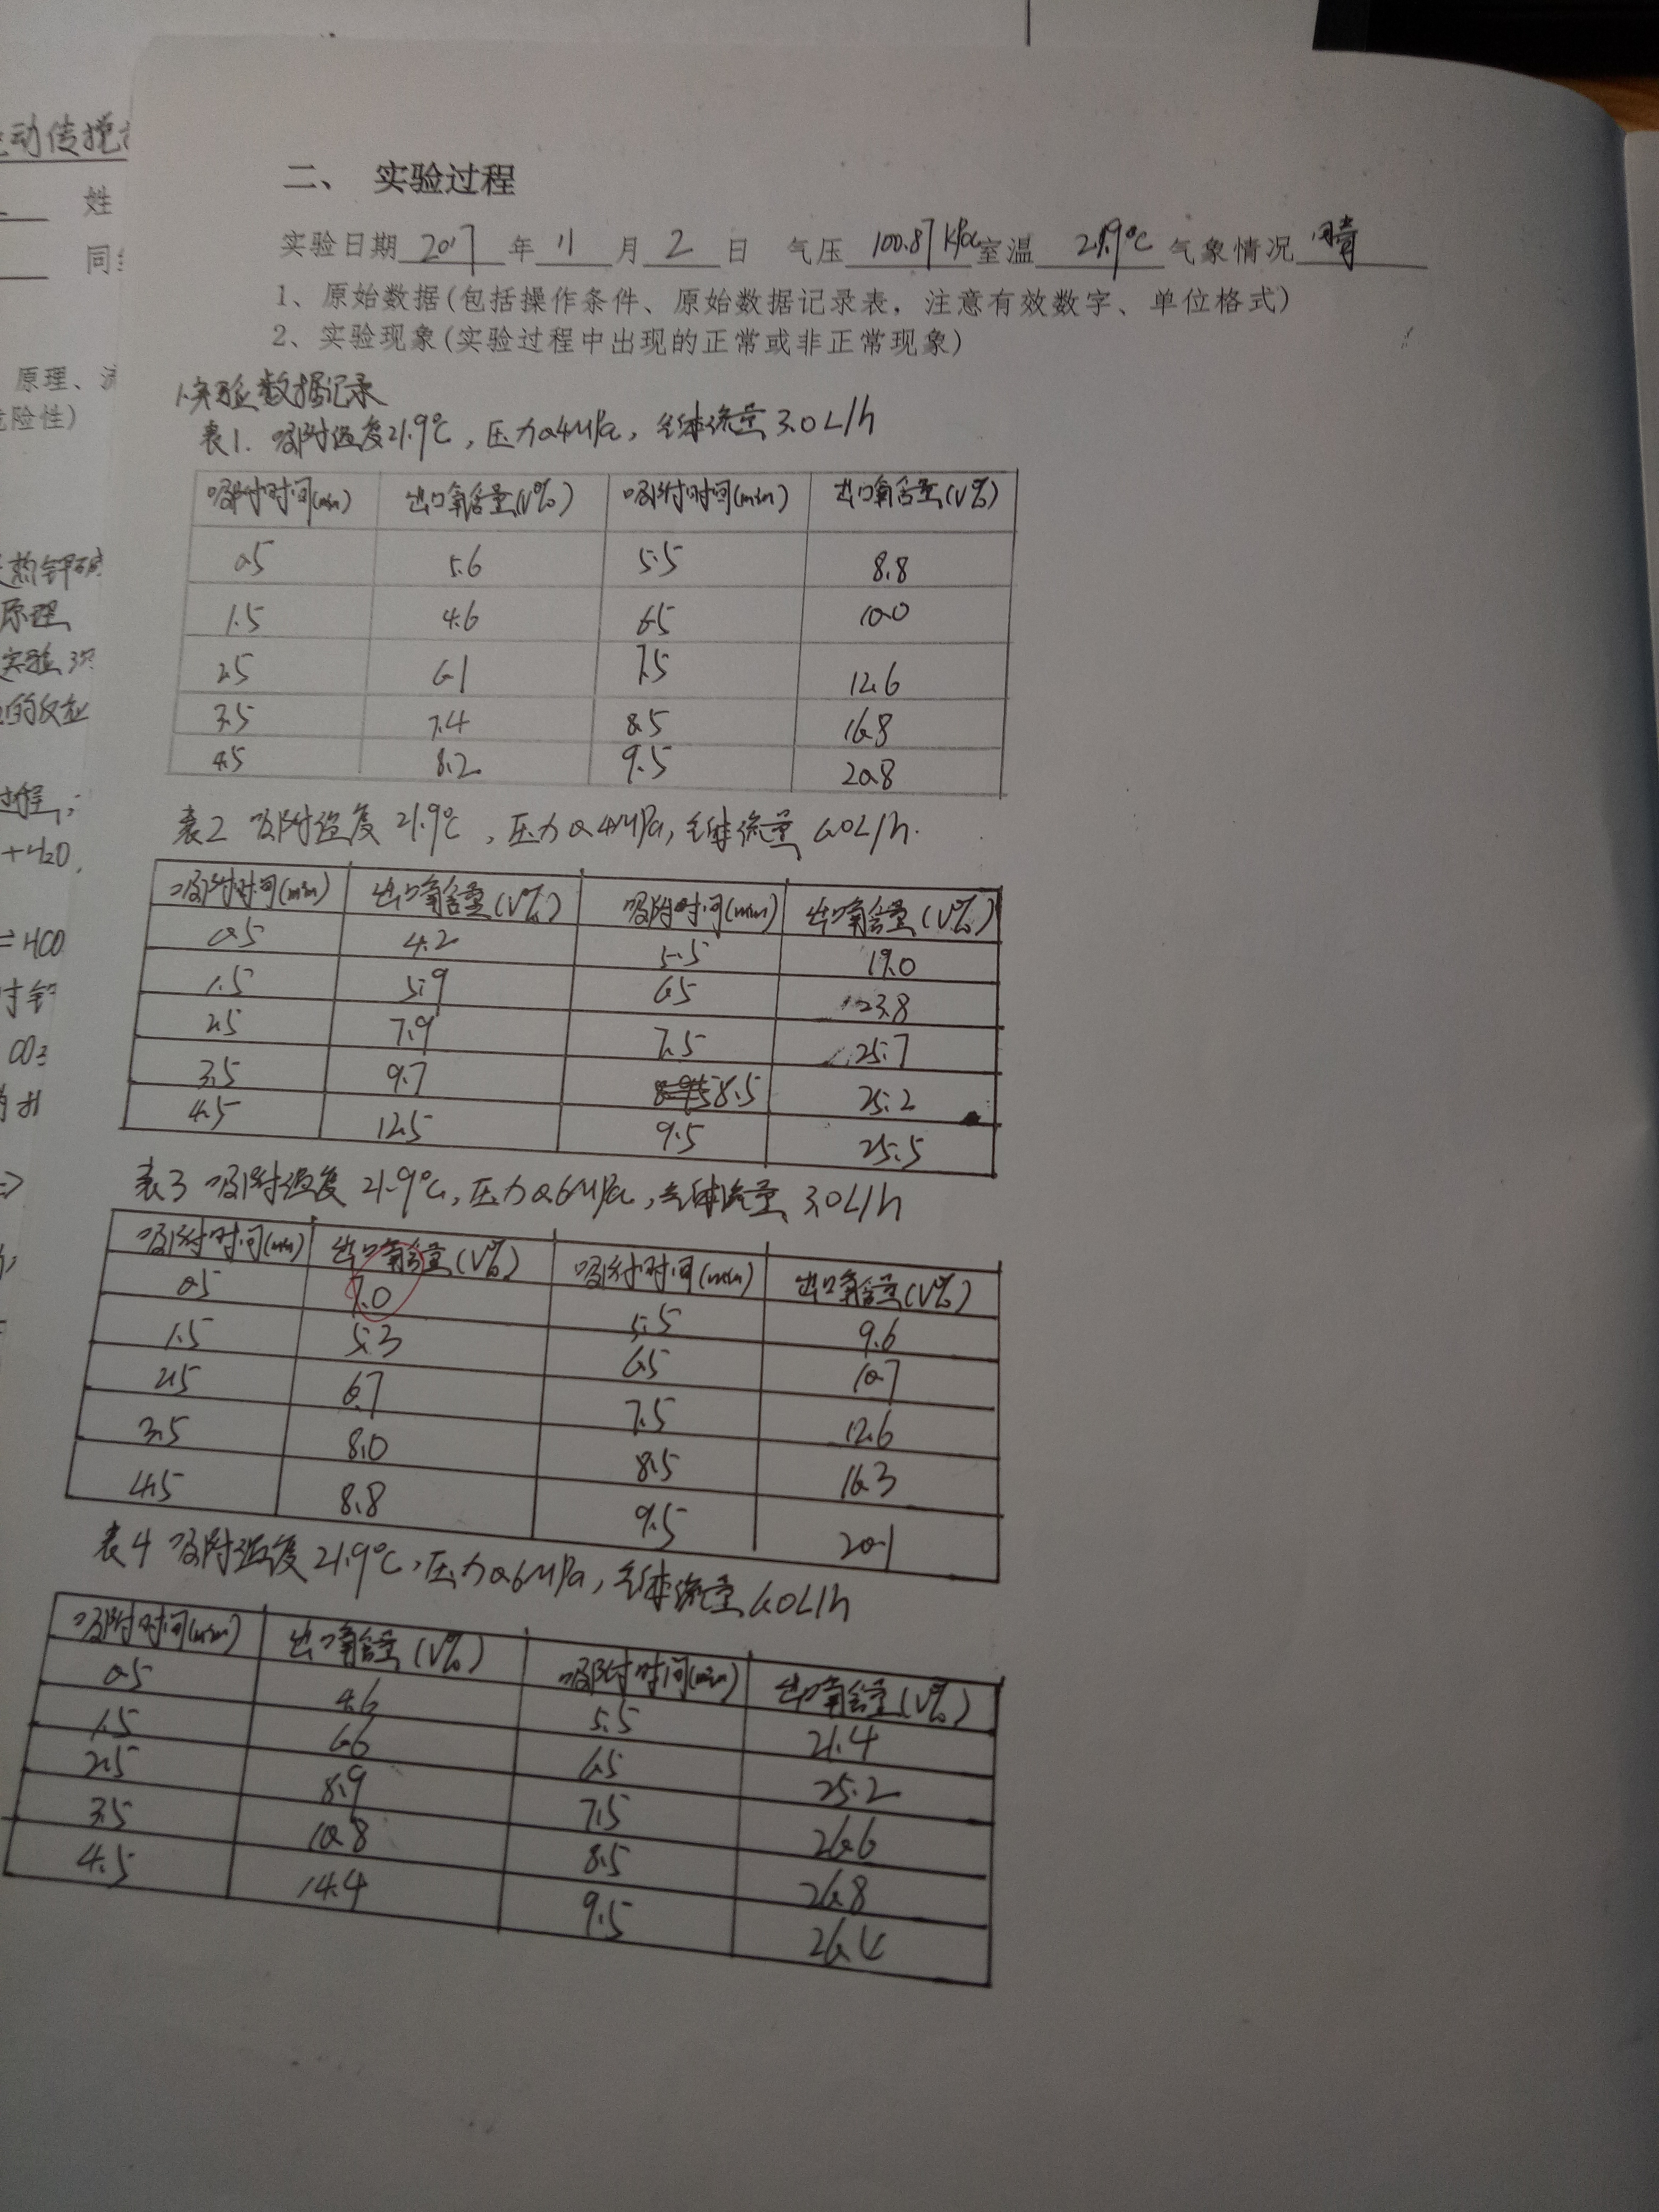 动传搅
姓
同组
原理、流
危险性)
原理
实验
的反应
过程;
+H2O,
=HCO
CO3
二、 实验过程
实验日期 2017 年 11 月 2 日 气压 100.87kPa 室温 21.9℃ 气象情况 晴
1、原始数据(包括操作条件、原始数据记录表，注意有效数字、单位格式)
2、实验现象(实验过程中出现的正常或非正常现象)
1.实验数据记录
表1. 吸附温度21.9℃，压力0.4MPa，气体流量3.0L/h
吸附时间(min) 出口氧含量(V%) 吸附时间(min) 出口氧含量(V%)
0.5 5.6 5.5 8.8
1.5 4.6 6.5 10.0
2.5 6.1 7.5 12.6
3.5 7.4 8.5 16.8
4.5 8.2 9.5 20.8
表2 吸附温度21.9℃，压力0.4MPa，气体流量6.0L/h.
吸附时间(min) 出口氧含量(V%) 吸附时间(min) 出口氧含量(V%)
0.5 4.2 5.5 19.0
1.5 5.9 6.5 23.8
2.5 7.9 7.5 25.7
3.5 9.7 8.5 25.2
4.5 12.5 9.5 25.5
表3 吸附温度21.9℃，压力0.6MPa，气体流量3.0L/h
吸附时间(min) 出口氧含量(V%) 吸附时间(min) 出口氧含量(V%)
0.5 7.0 5.5 9.6
1.5 5.3 6.5 10.7
2.5 6.7 7.5 12.6
3.5 8.0 8.5 16.3
4.5 8.8 9.5 20.1
表4 吸附温度21.9℃，压力0.6MPa，气体流量6.0L/h
吸附时间(min) 出口氧含量(V%) 吸附时间(min) 出口氧含量(V%)
0.5 4.6 5.5 21.4
1.5 6.6 6.5 25.2
2.5 8.9 7.5 26.6
3.5 10.8 8.5 26.8
4.5 14.4 9.5 26.4